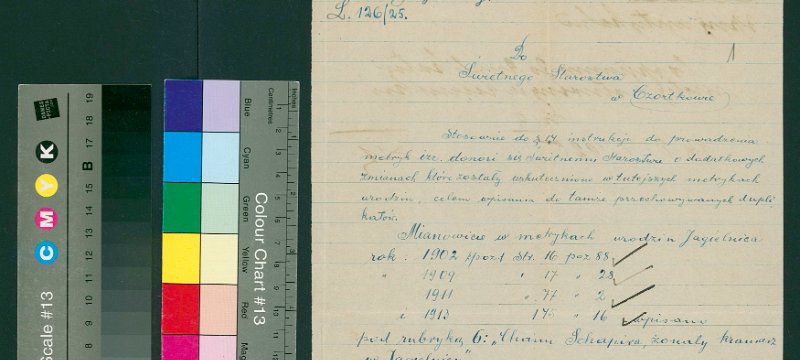 L. 126/25.
1
Do
Świetnego Starostwa
w Czortkowie
Stosownie do § 17 instrukcji do prowadzenia
metryk izr. donosi się Świetnemu Starostwu o dodatkowych
zmianach które zostały uskutecznione w tutejszych metrykach
urodzin, celem wpisania do tamże przechowywanych dupli
katów.
Mianowicie w metrykach urodzin Jagielnica
rok: 1902 str. 16 poz 88
" 1909 " 17 " 28
" 1911 " 77 " 2
i 1913 " 175 " 16 wpisano
pod rubryką 6: „Chaim Schapira, żonaty kramarz
w Jagielnicy"
Scale #13
C M Y K
B
19
18
17
16
15
14
13
12
11
10
9
8
Colour Chart #13
Blue
Cyan
Green
Yellow
Red
Mag
Centimetres
Inches